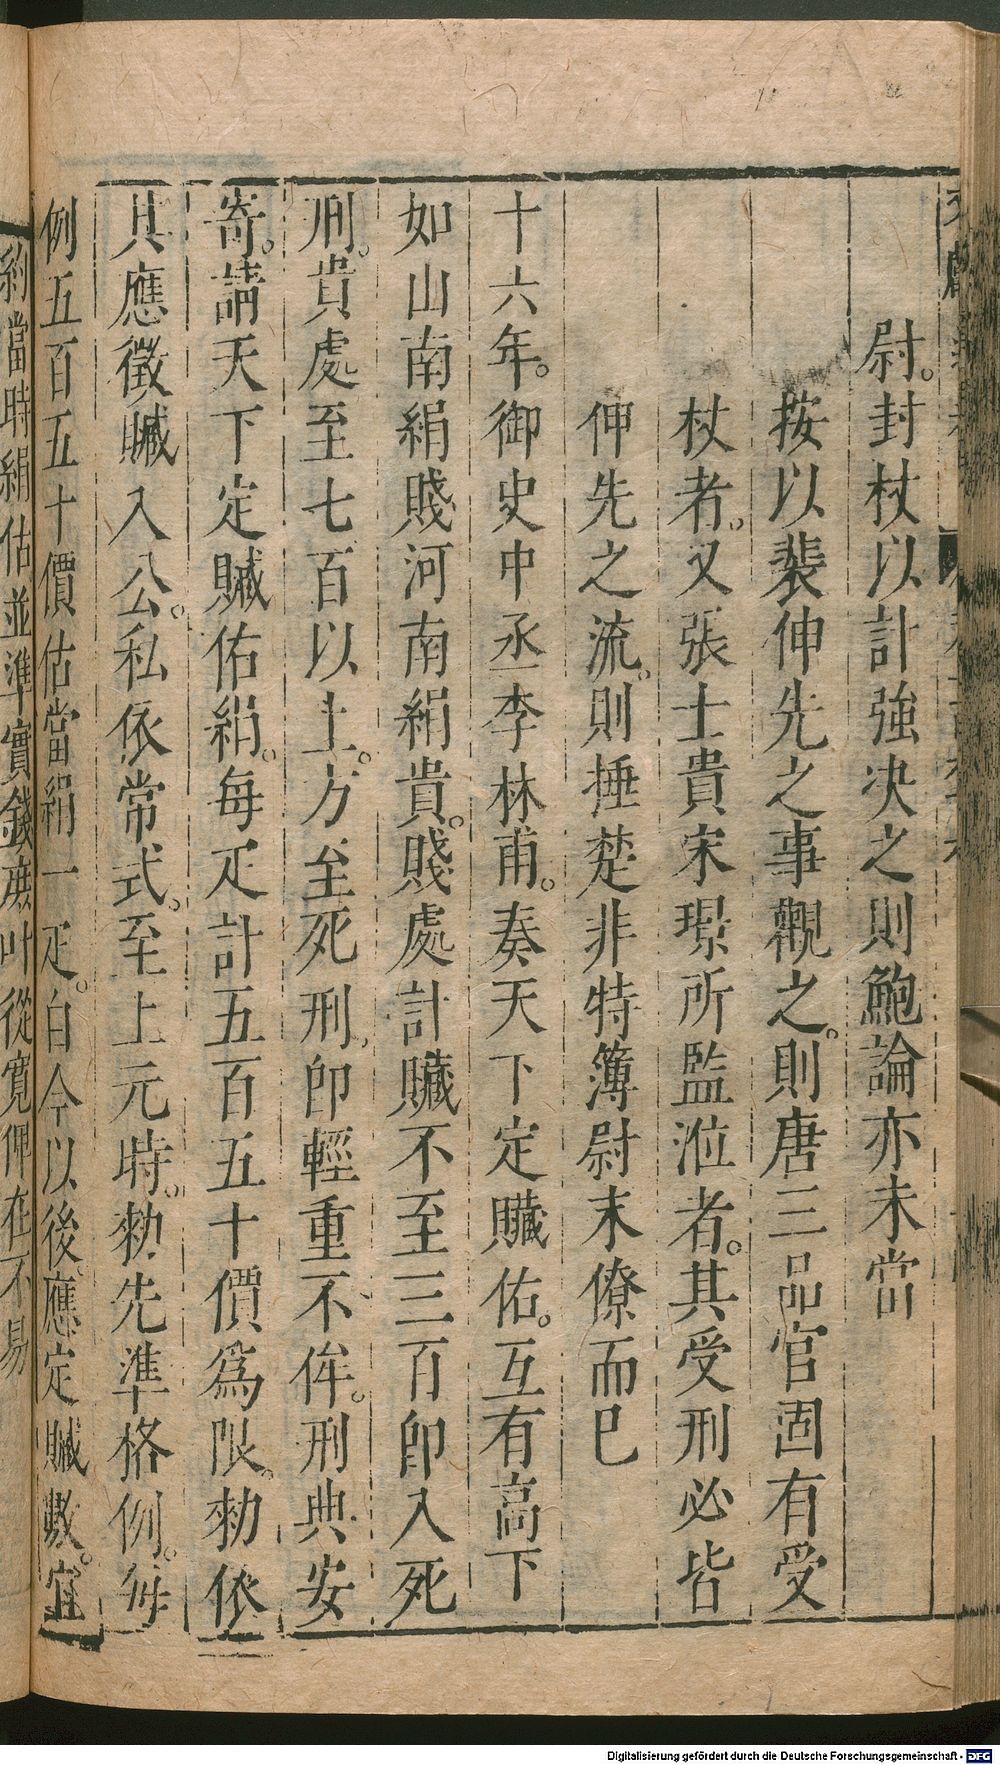 尉。封杖以計強决之則鮑論亦未當
按以裴伷先之事觀之。則唐三品官固有受
杖者。又張士貴宋璟所監涖者。其受刑必皆
伷先之流。則捶楚非特簿尉末僚而巳
十六年。御史中丞李林甫。奏天下定贓佑。互有高下
如山南絹賤河南絹貴。賤處計贓不至三百卽入死
刑。貴處至七百以上。方至死刑卽輕重不侔。刑典安
寄。請天下定贓佑絹。每疋計五百五十價爲限。勑依
其應徵贓入公。私依常式。至上元時。勑先準格例。每
例五百五十價估當絹一疋。自今以後應定贓數。宜
約當時絹估並準實錢庶叶從寬俾在不易
Digitalisierung gefördert durch die Deutsche Forschungsgemeinschaft - DFG